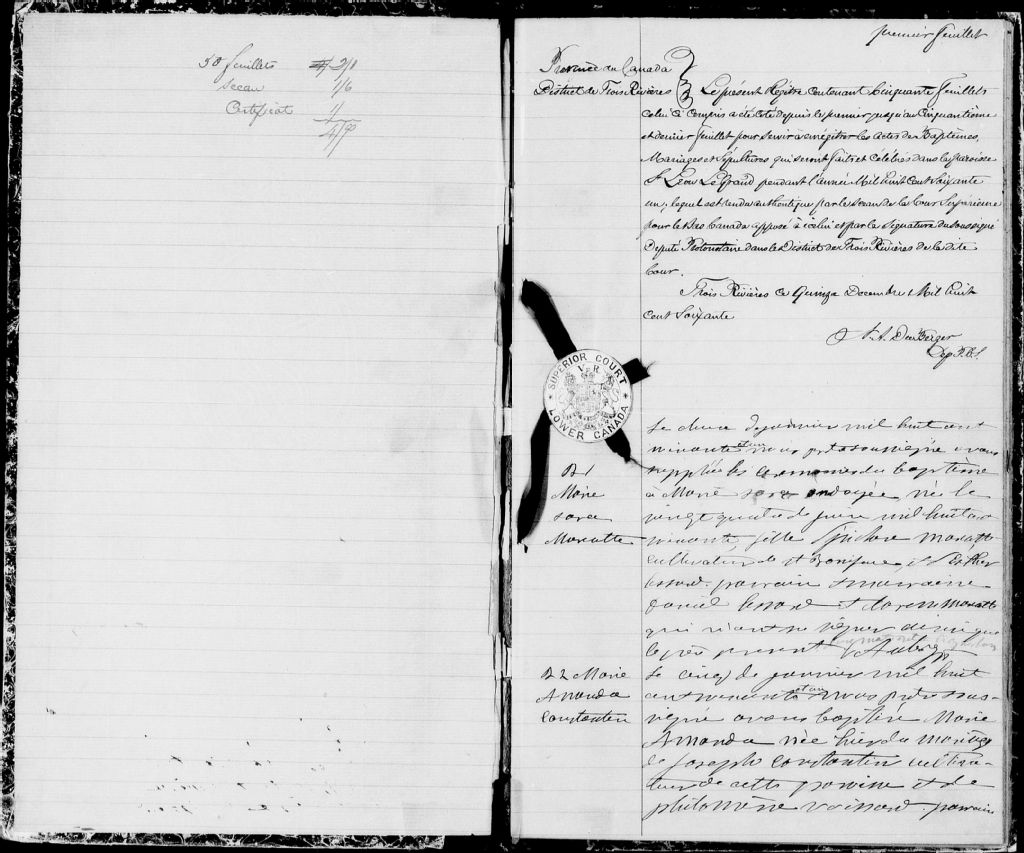 50 feuillets 2/1
Sceau 1/6
Certificat 1/
premier feuillet
Province du Canada
District de Trois Rivières
Le présent Régistre contenant Cinquante feuillets
celui ci compris a été coté depuis le premier jusqu'au Cinquantième
et dernier feuillet pour servir à enrégistrer les actes de Baptêmes,
Mariages et Sépultures qui seront faits et célébrés dans la paroisse
St Léon Le Grand pendant l'année Mil huit Cent Soixante
un; lequel est rendu authentique par le Sceau de la Cour Supérieure
pour le Bas Canada apposé à icelui et par la Signature du soussigné
Député Protonotaire dans le District des Trois Rivières de la dite
Cour.
Trois Rivières ce Quinze Decembre Mil huit
Cent Soixante
SUPERIOR COURT
V R
LOWER CANADA
B 1
Marie
Marcotte
Le deux de janvier mil huit cent
nous prêtre soussigné avons
suppléé les ceremonies du baptême
à Marie ondoyée née le
vingt quatre de mil huit cent
fille Marcotte
cultivateur de St Boniface, et Esther
Lessard. parrain et marraine
Daniel Lessard et Marcotte
qui n'ont su signer
le père present
B 2 Marie
Amanda
Constantin
Le cinq de janvier mil huit
cent et un nous prêtre sous-
signé avons baptisé Marie
Amanda née hier du mariage
de Joseph Constantin cultiva-
teur de cette paroisse et de
philomène parrain